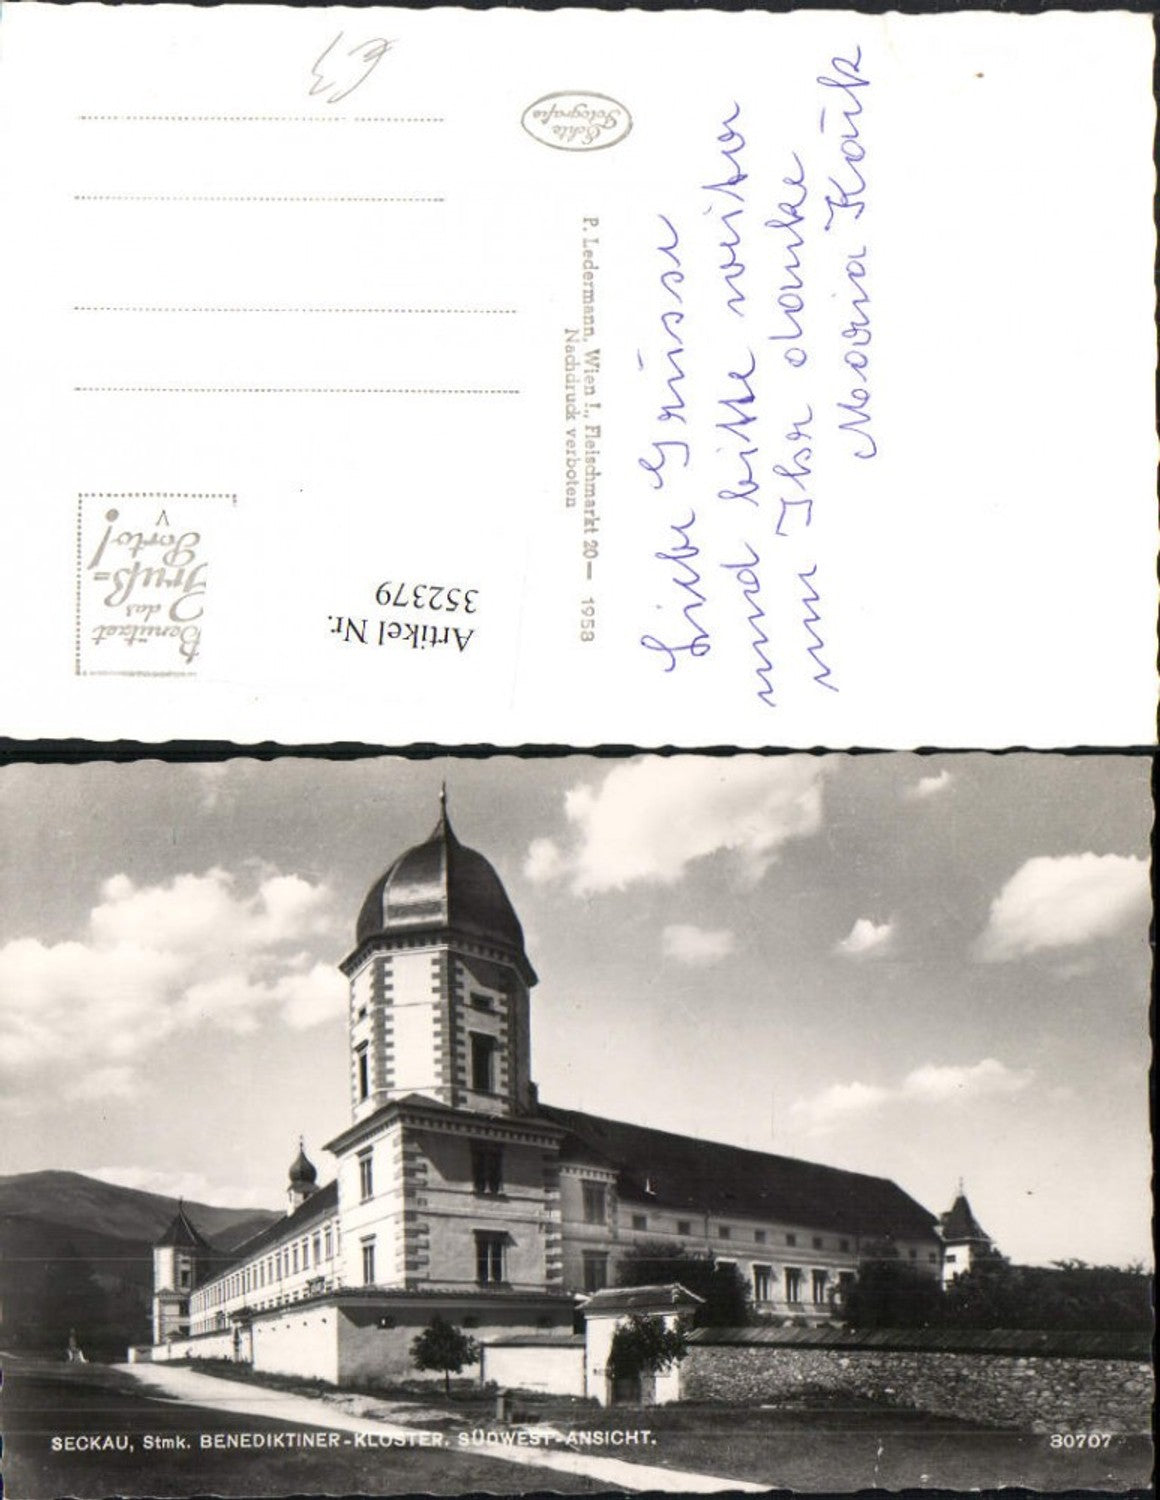 €3
Echte
Fotografie
P. Ledermann, Wien I., Fleischmarkt 20— 1958
Nachdruck verboten
Benützet
das
Gruß=
Porto!
Artikel Nr.
352379
Liebe Grüsse
und bitte weiter
um Ihre
Maria
SECKAU, Stmk. BENEDIKTINER-KLOSTER. SÜDWEST-ANSICHT.
30707